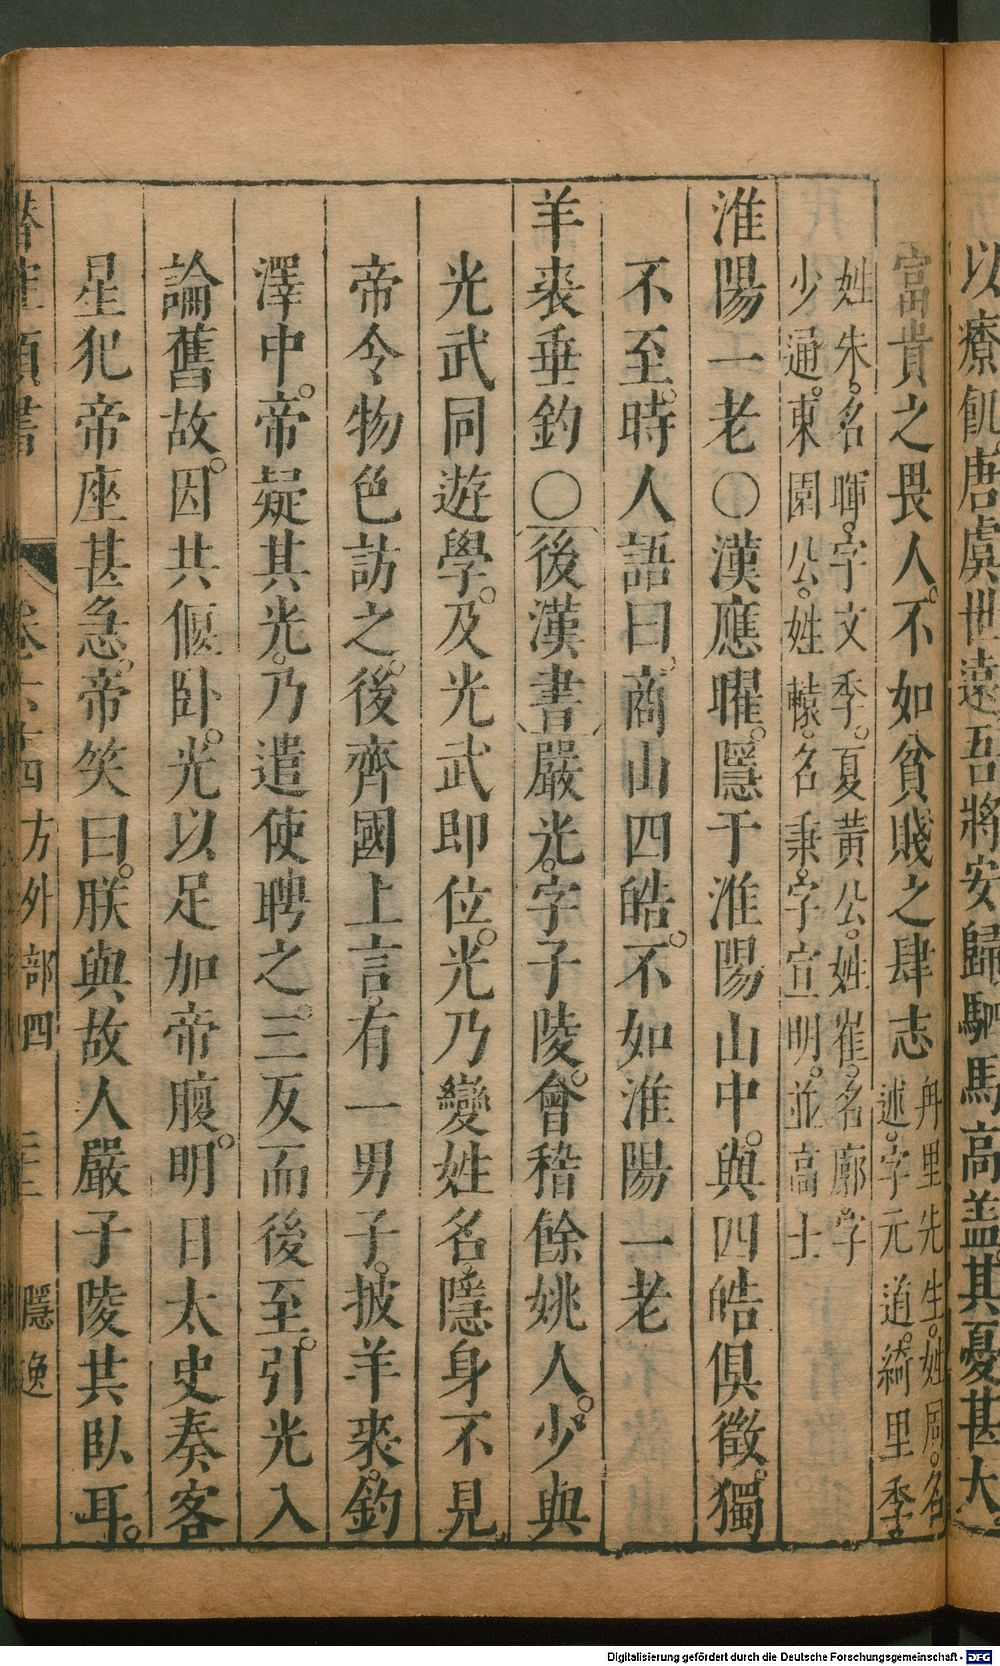 以療飢唐虞世遠吾將安歸駟馬高盖其憂甚大
富貴之畏人。不如貧賤之肆志
甪里先生。姓周。名
述。字元道。綺里季
姓朱。名暉。字文季。夏黃公。姓崔。名廓。字
少通。東園公。姓轅。名秉。字宣明。並高士
淮陽一老〇漢應曜。隱于淮陽山中。與四皓俱徵。獨
不至。時人語曰。商山四皓。不如淮陽一老
羊裘垂釣〇後漢書嚴光。字子陵。會稽餘姚人。少與
光武同遊學。及光武即位。光乃變姓名。隱身不見
帝令物色訪之。後齊國上言。有一男子。披羊裘。釣
澤中。帝疑其光。乃遣使聘之。三反而後至。引光入
論舊故。因共偃卧。光以足加帝腹。明日太史奏客
星犯帝座甚急。帝笑曰。朕與故人嚴子陵共臥耳。
類書 卷六十四方外部四 隱逸
Digitalisierung gefördert durch die Deutsche Forschungsgemeinschaft - DFG